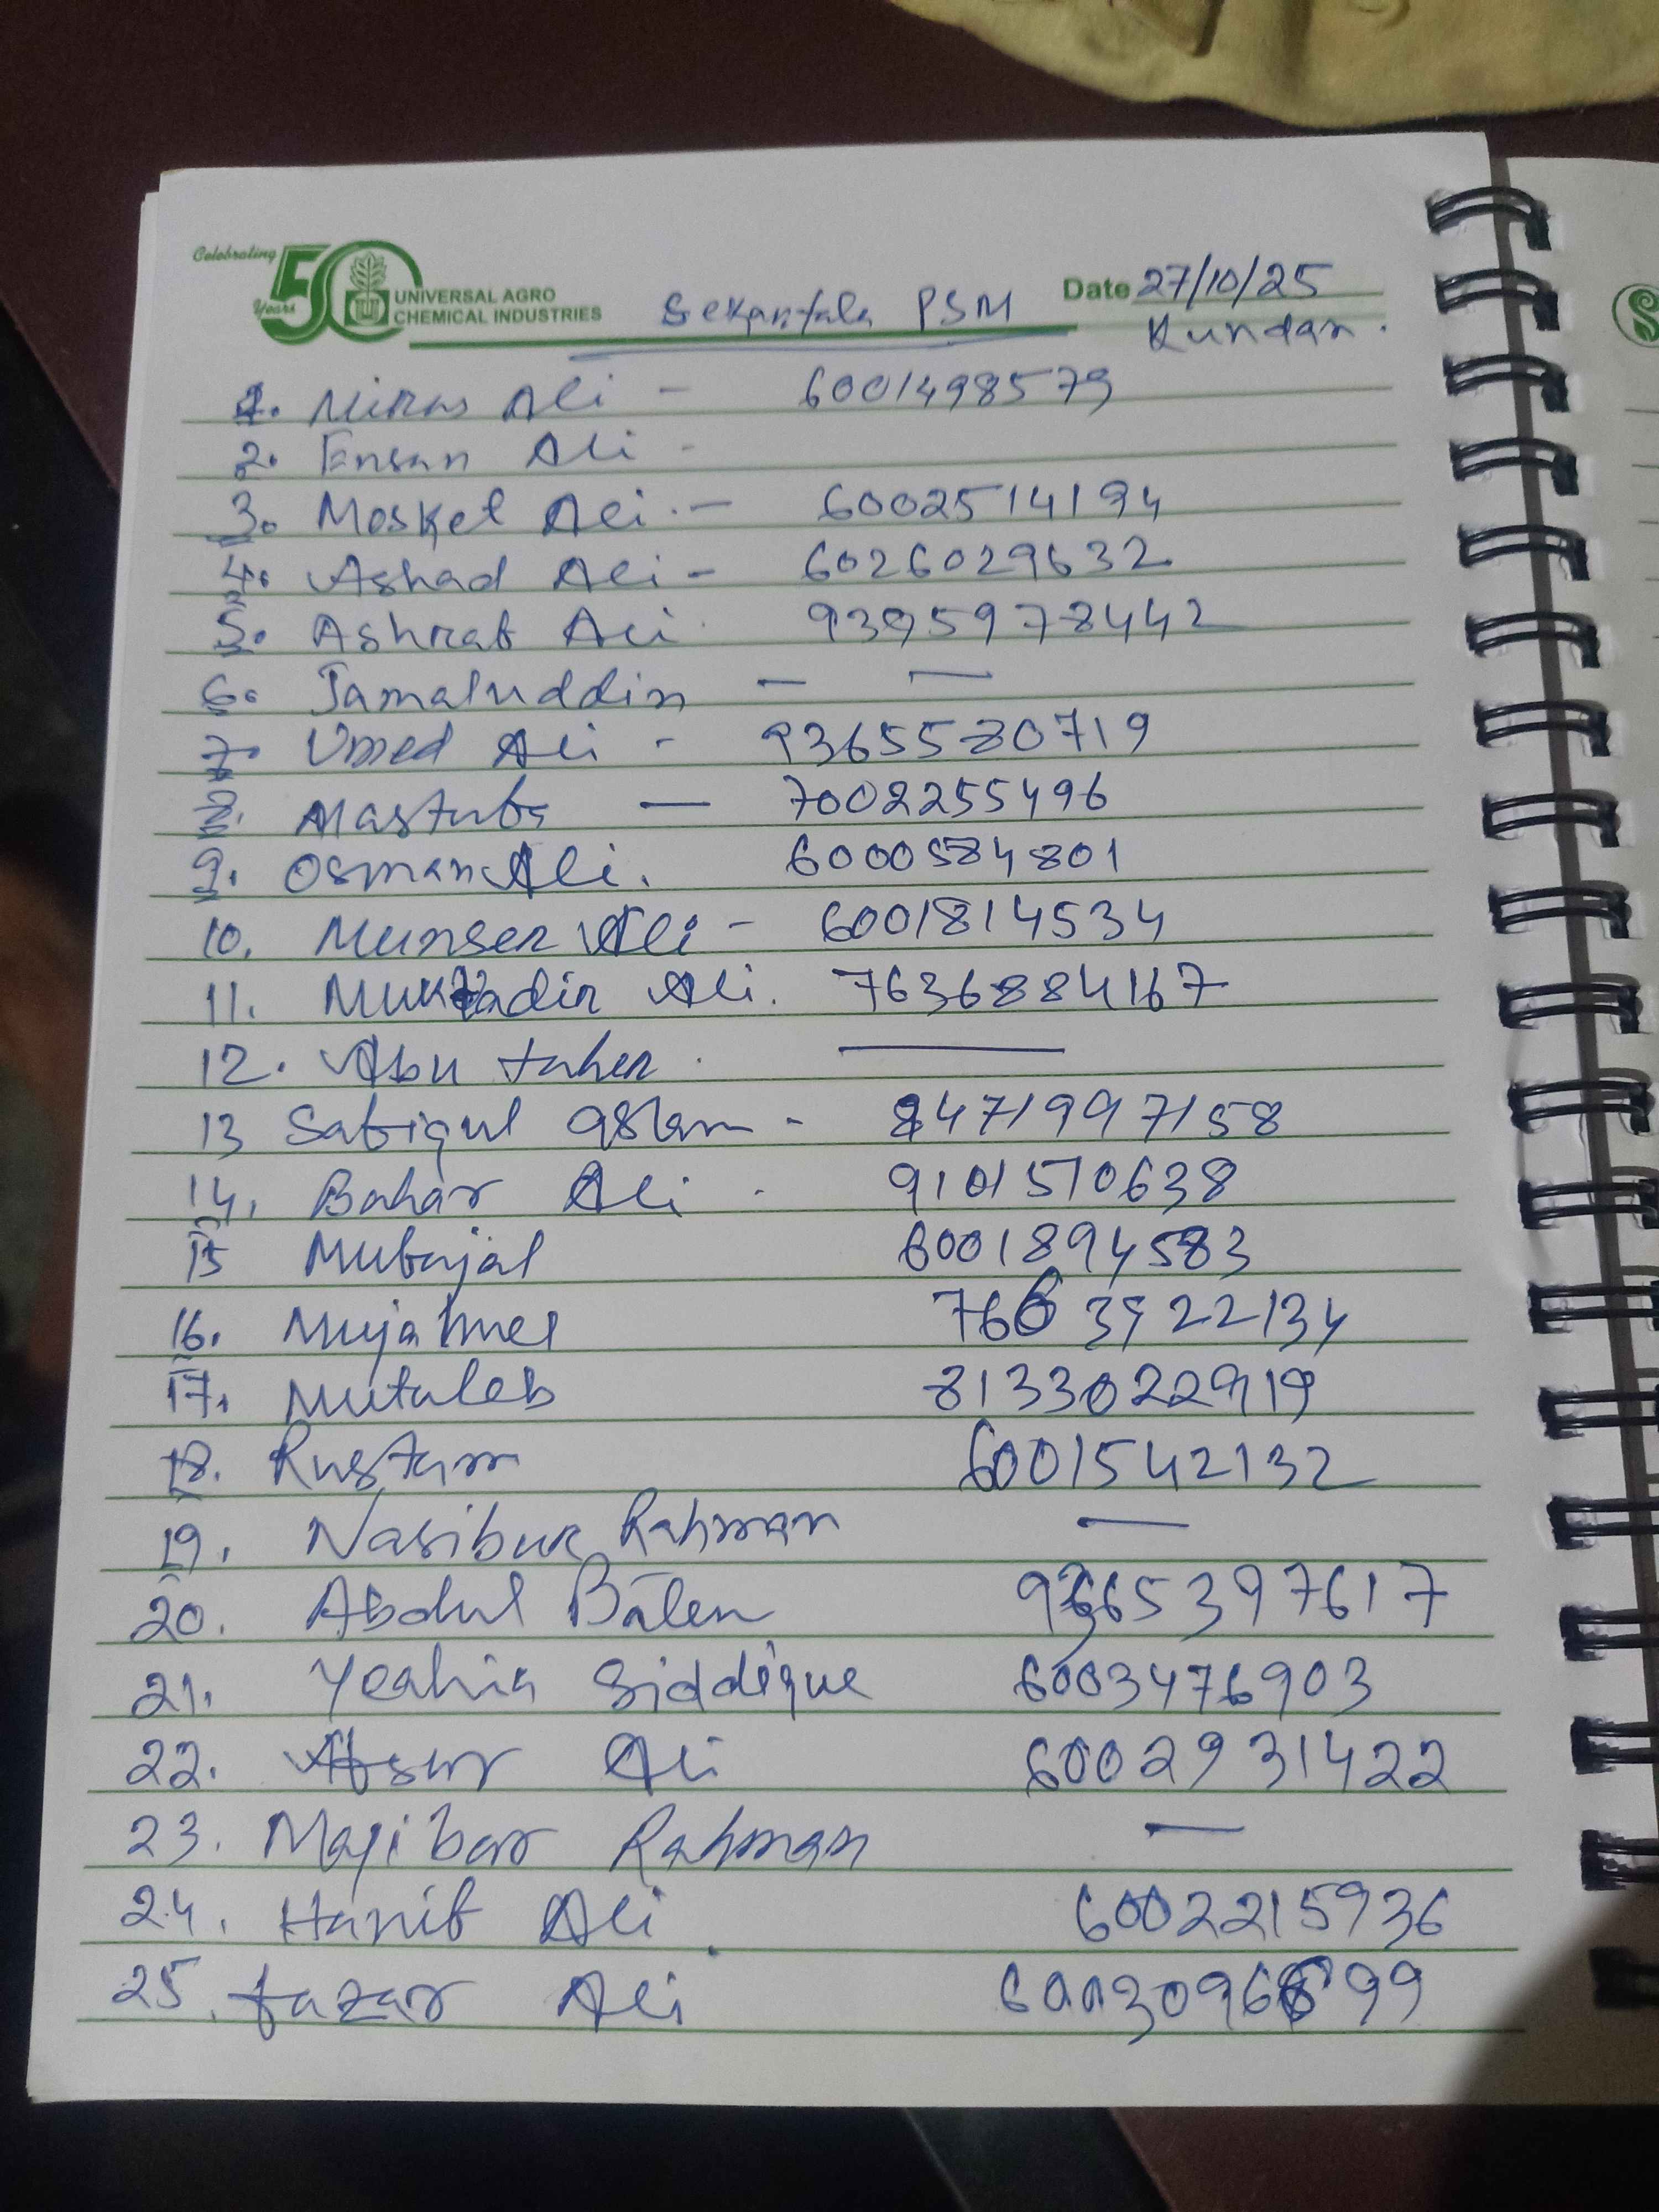 Celebrating
50
Years
UNIVERSAL AGRO
CHEMICAL INDUSTRIES
Sekantala PSM
Date 27/10/25
Kundan.
1. Miras Ali - 6001498579
2. Ensan Ali -
3. Mosket Ali. - 6002514194
4. Ashad Ali - 6026029632
5. Ashraf Ali. 9395978442
6. Jamaluddin - —
7. Umed Ali - 9365580719
8. Mastufa — 7002255496
9. Osman Ali. 6000584801
10. Munser Ali - 6001814534
11. Mukhadir Ali. 7636884167
12. Abu taher. —
13 Safiqul Islam - 8471997158
14. Bahar Ali - 9101570638
15 Mubajal 6001894583
16. Mujahmel
17. Mutaleb 8133022919
18. Rustam 6001542132
19. Nasibur Rahman —
20. Abdul Baten
21. Yeahia Siddique 6003476903
22. Afsur Ali 6002931422
23. Majibar Rahman —
24. Hanif Ali 6002215936
25. fazar Ali